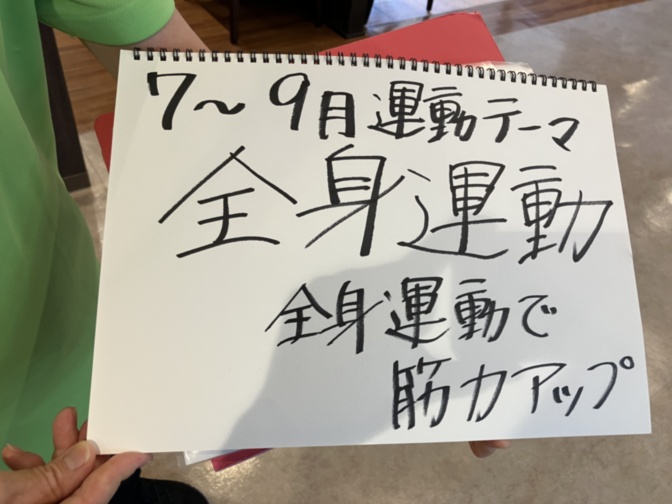 7～9月運動テーマ
全身運動
全身運動で
筋力アップ